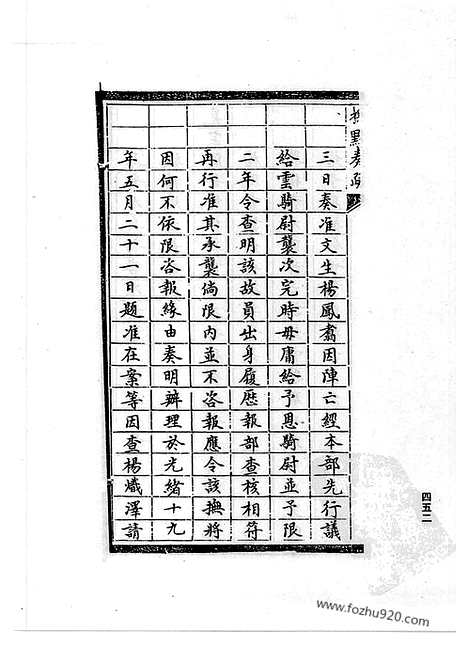 撫黔奏疏
三日奏准文生楊鳳翥因陣亡經本部先行議
給雲騎尉襲次完時毋庸給予恩騎尉並予限
二年令查明該故員出身履歷報部查核相符
再行准其承襲倘限內並不咨報應令該撫將
因何不依限咨報緣由奏明辦理於光緒十九
年五月二十一日題准在案等因查楊熾澤請
四五二
www.fozhu920.com